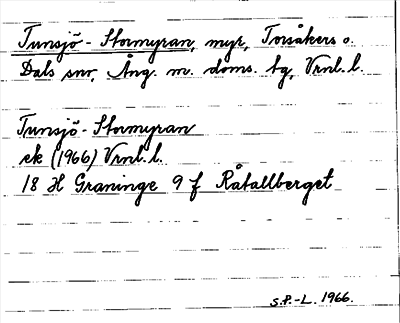 Tunsjö-Stormyran, myr, Torsåkers o.
Dals snr, Ång. m. doms. bg, Vrnl. l.
Tunsjö-Stormyran
ek (1966) Vrnl. l.
18 H Graninge 9 f Råtallberget
S.P.-L. 1966.